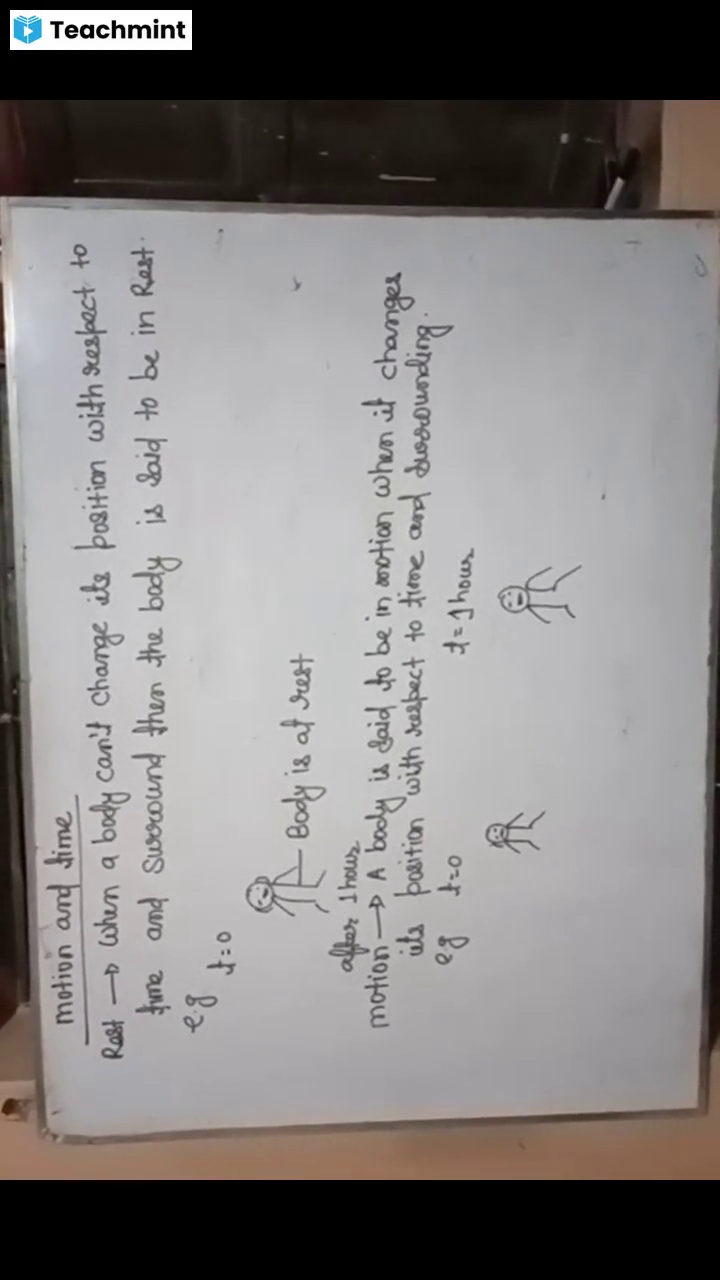 Teachmint
motion and time
Rest → When a body can't change its position with respect to
time and Surround then the body is Said to be in Rest.
e.g
t=0
Body is at rest
after 1 hour
motion → A body is Said to be in motion when it changes
its position with respect to time and Surrounding.
e.g t=0 t=1 hour